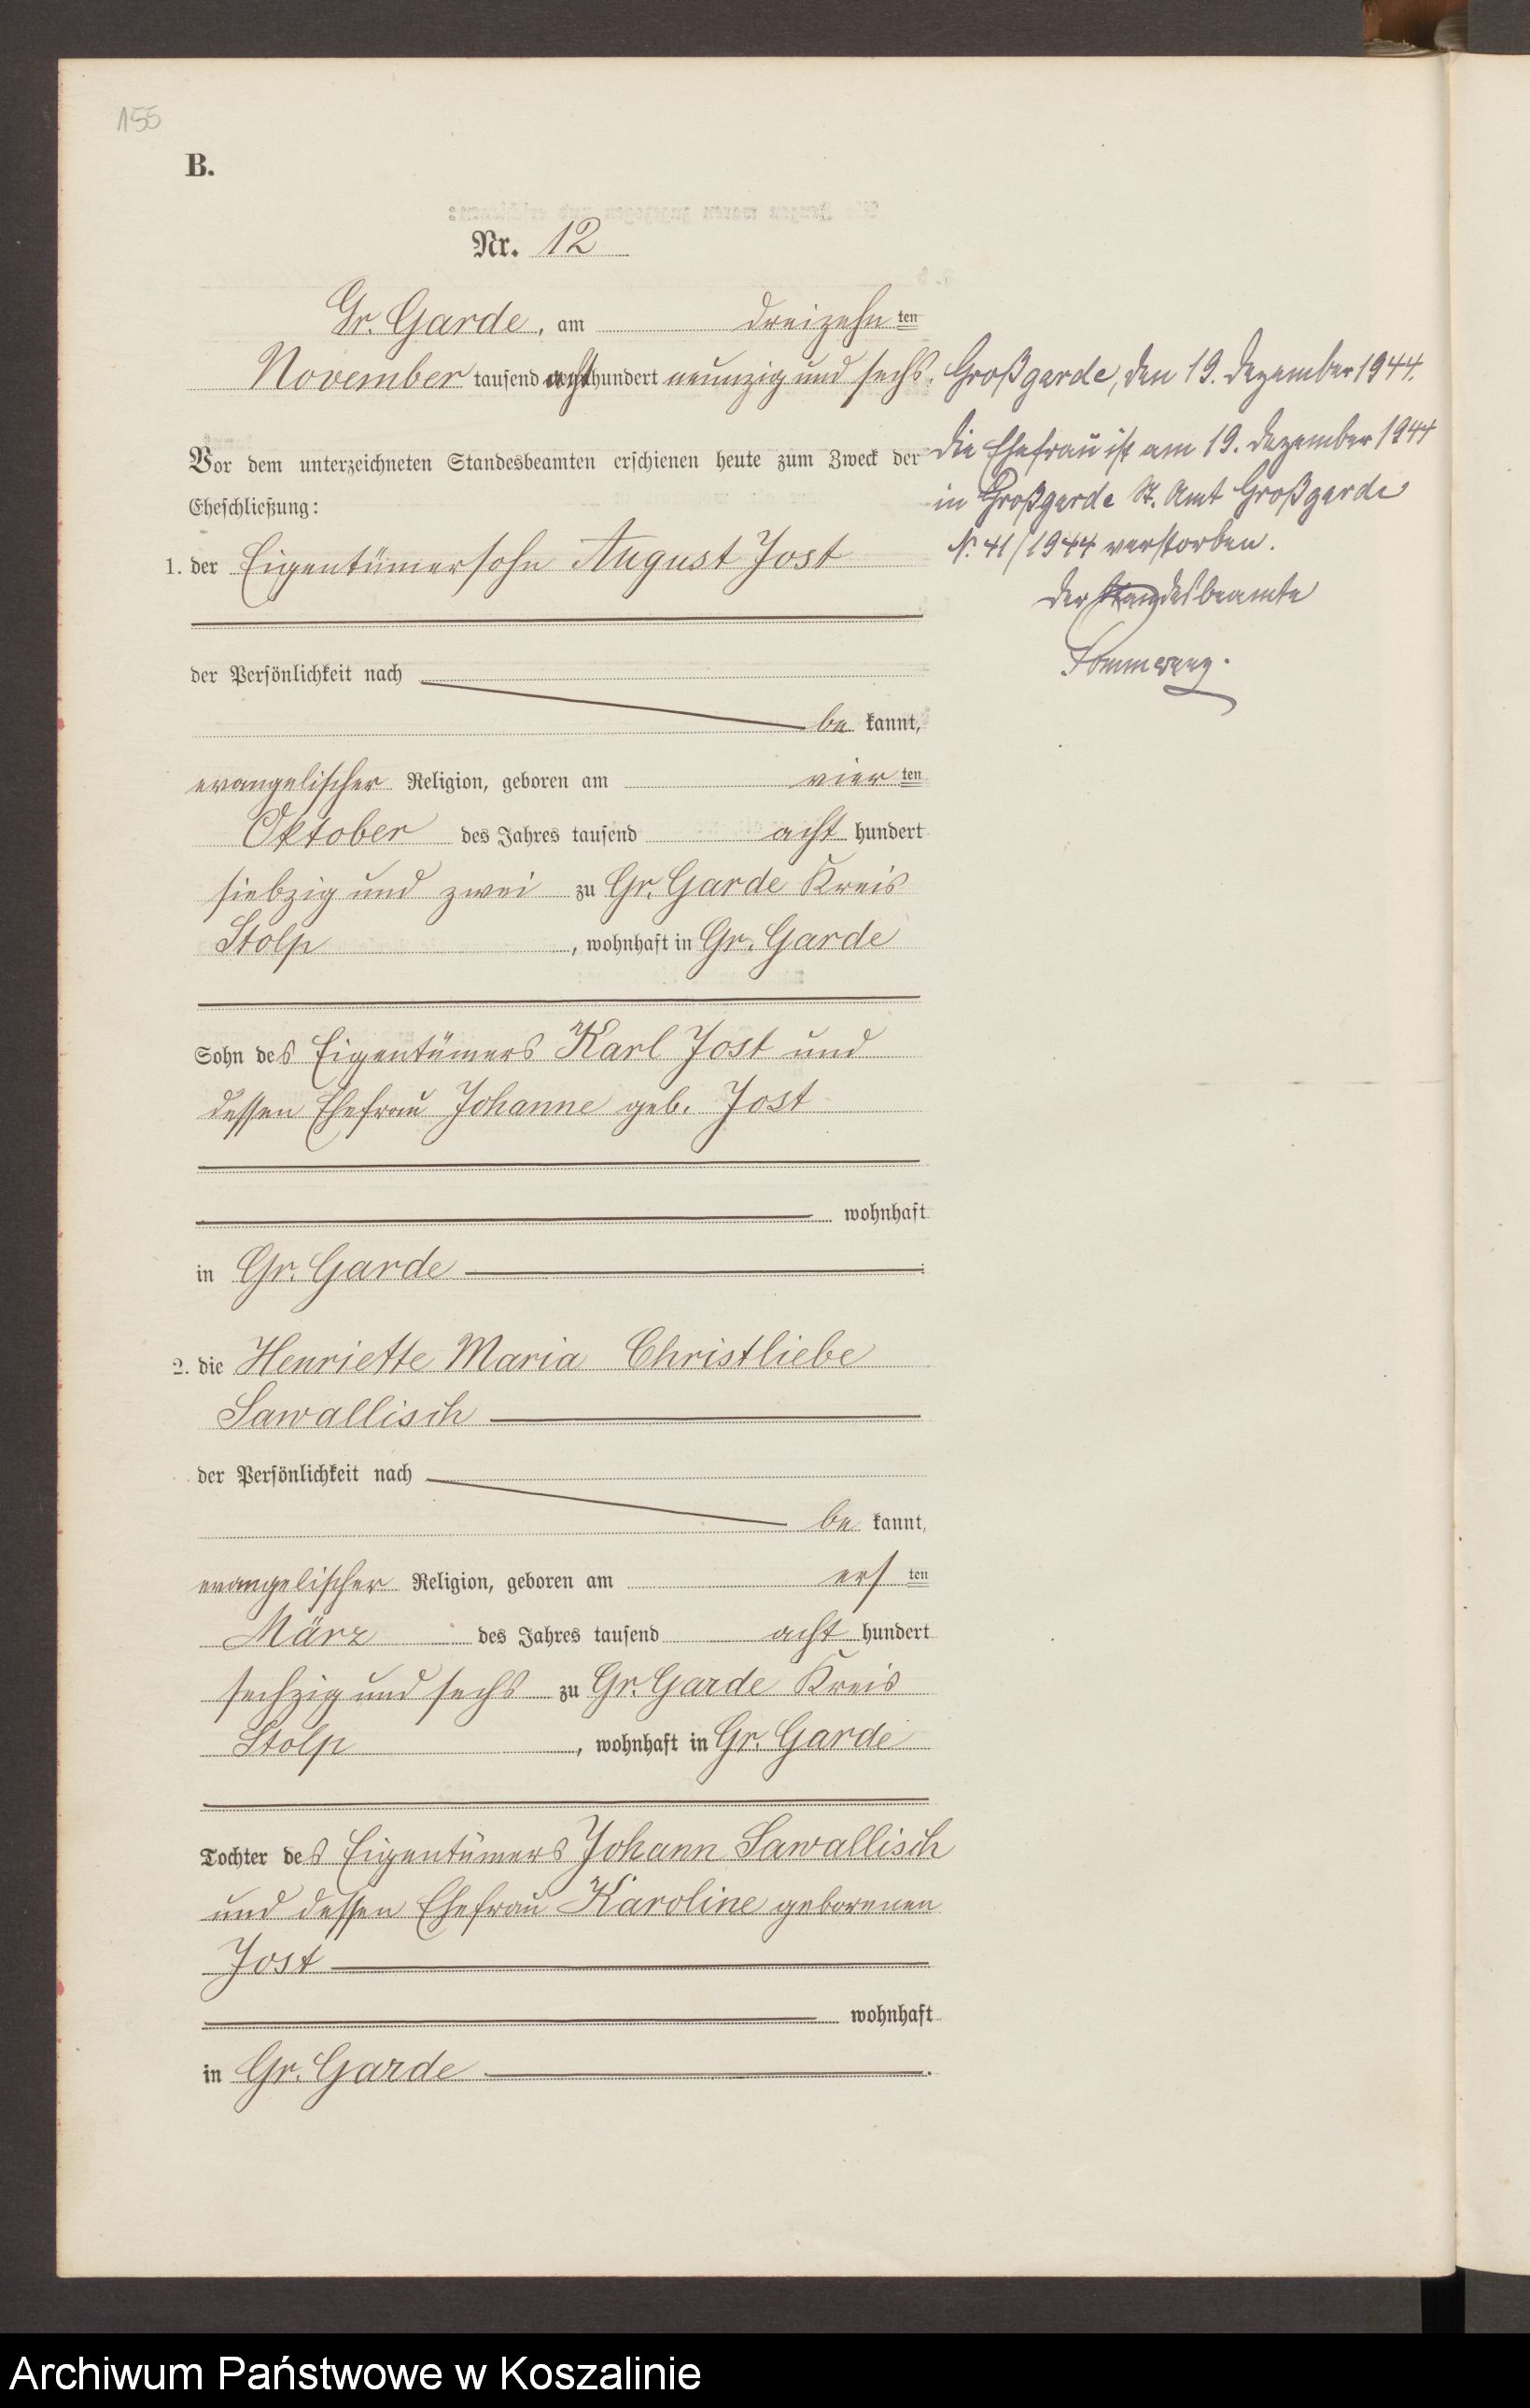 155
B.
Nr. 12
Gr. Garde, am dreizehn ten
November tausend acht hundert neunzig und sechs.
Vor dem unterzeichneten Standesbeamten erschienen heute zum Zweck der
Eheschließung:
1. der Eigentümersohn August Jost
der Persönlichkeit nach
be kannt,
evangelischer Religion, geboren am vier ten
Oktober des Jahres tausend acht hundert
siebzig und zwei zu Gr. Garde Kreis
Stolp, wohnhaft in Gr. Garde
Sohn des Eigentümers Karl Jost und
dessen Ehefrau Johanne geb. Jost
wohnhaft
in Gr. Garde
2. die Henriette Maria Christliebe
Sawallisch
der Persönlichkeit nach
be kannt,
evangelischer Religion, geboren am ers ten
März des Jahres tausend acht hundert
sechzig und sechs zu Gr. Garde Kreis
Stolp, wohnhaft in Gr. Garde
Tochter des Eigentümers Johann Sawallisch
und dessen Ehefrau Karoline geborenen
Jost
wohnhaft
in Gr. Garde.
Großgarde, den 19. Dezember 1944.
Die Ehefrau ist am 19. Dezember 1944
in Großgarde St. Amt Großgarde
N. 41/1944 verstorben.
Der Standesbeamte
Archiwum Państwowe w Koszalinie